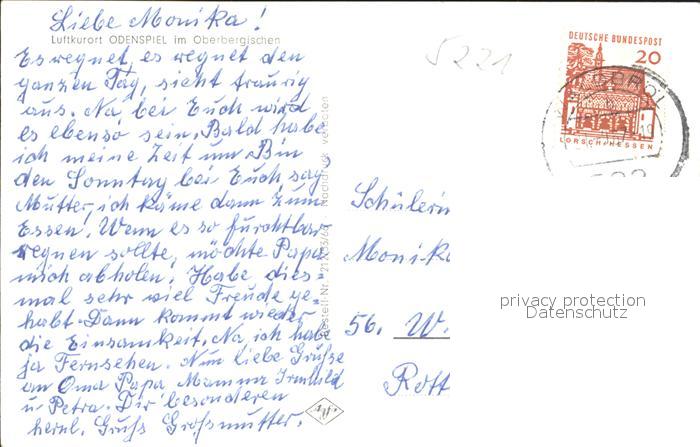 Liebe Monika!
Luftkurort ODENSPIEL im Oberbergischen
Es regnet, es regnet den
ganzen Tag, sieht traurig
aus. Na, bei Euch wird
es ebenso sein. Bald habe
ich meine Zeit um. Bin
den Sonntag bei Euch, sag
Mutter, ich käme dann zum
Essen. Wenn es so furchtbar
regnen sollte, möchte Papa
mich abholen. Habe dies-
mal sehr viel Freude ge-
habt. Dann kommt wieder
die Einsamkeit. Na ich habe
ja Fernsehen. Nun liebe Grüße
an Oma Papa Mamma Irmhild
u. Petra. Dir besonderen
herzl. Gruß Großmutter.
Nachdruck verboten
Bestell-Nr.
5221
DEUTSCHE BUNDESPOST
20
LORSCH/HESSEN
Schülerin
Monika
56. W.
Rott
privacy protection
Datenschutz